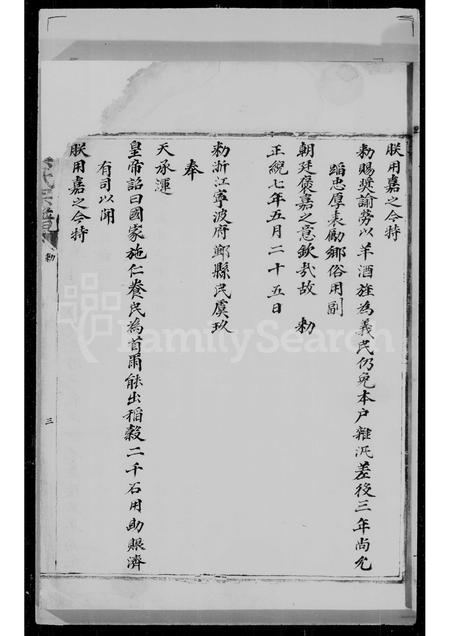 朕用嘉之今特
勑賜奨諭勞以羊酒旌為義民仍免本户雜汎差役三年尚允
蹈忠厚表勵鄉俗用副
朝廷褒嘉之意欽哉故 勑
正統七年五月二十五日
勑浙江寧波府鄞縣民虞玖
奉
天承運
皇帝詔曰國家施仁養民為首爾能出稻榖二千石用助賑濟
有司以聞
朕用嘉之今特
氏宗譜
勑
三
FamilySearch